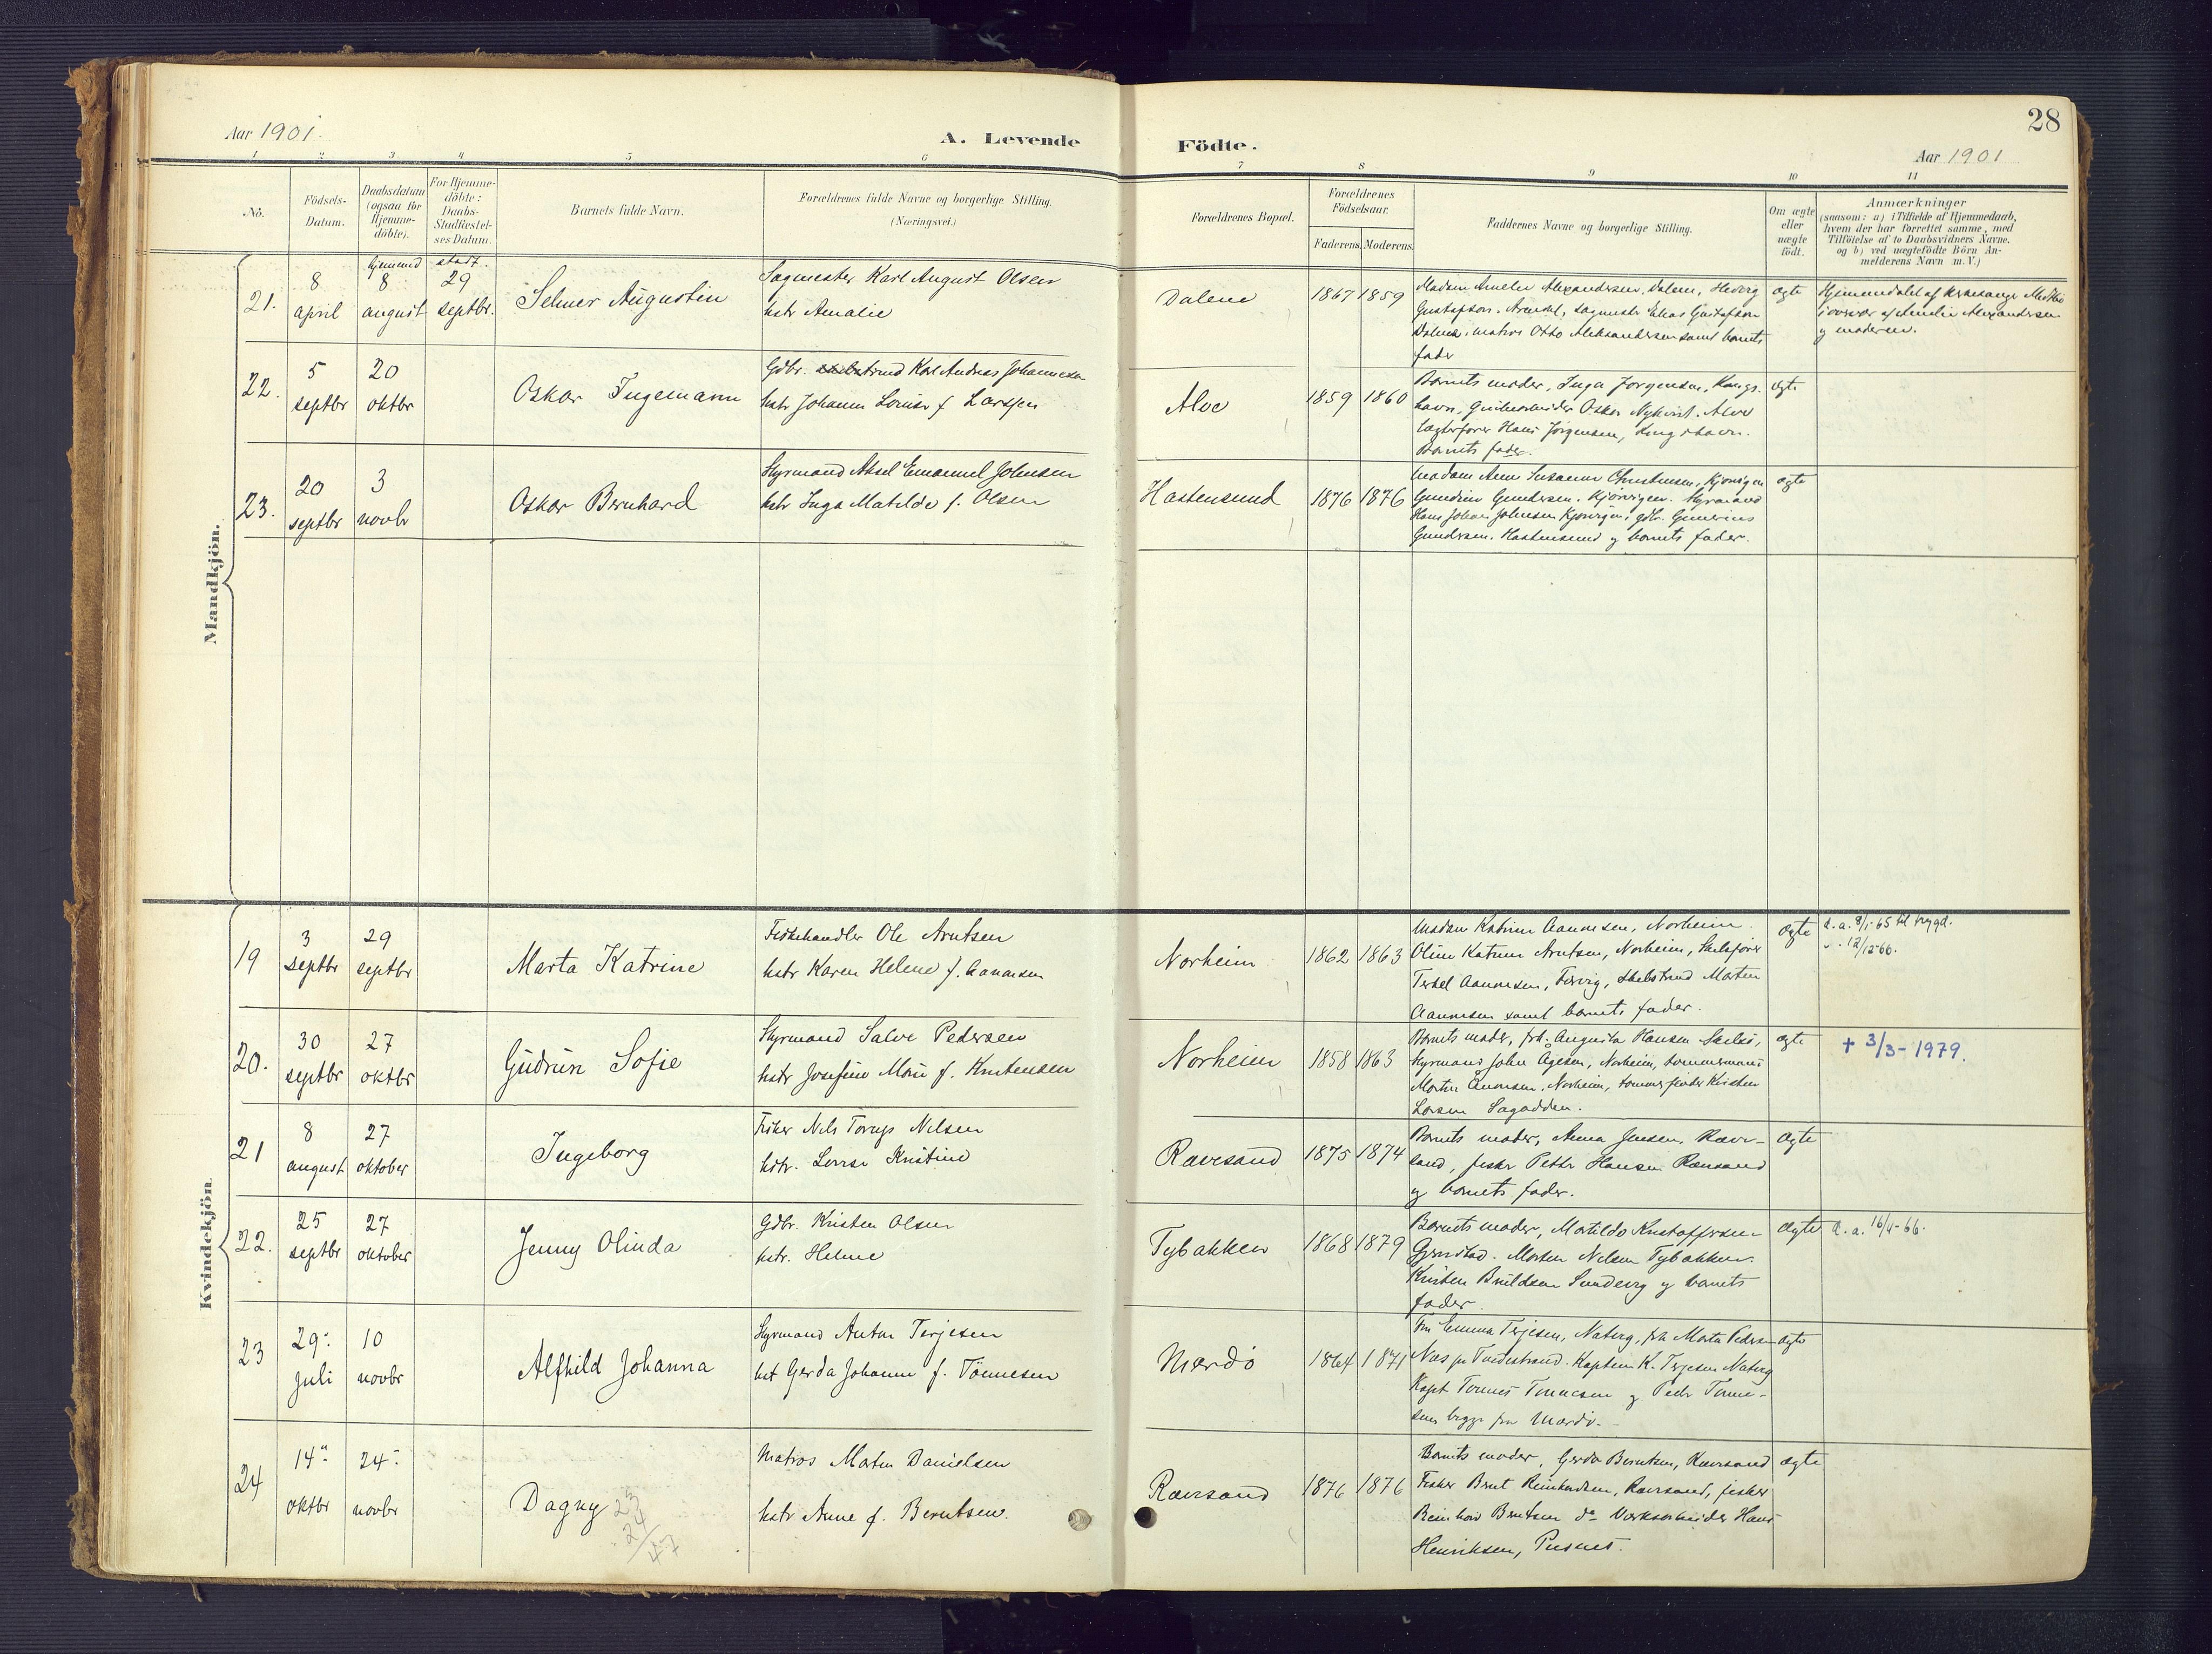 Aar 1901.
A. Levende
Födte.
28
Aar 1901
1 2 3 4 5 6 7 8 9 10 11
Nö.
Födsels-
Datum.
Daabsdatum
(ogsaa for
Hjemme-
döbte).
For Hjemme-
döbte:
Daabs-
Stadfæstel-
ses Datum.
Barnets fulde Navn.
Forældrenes fulde Navne og borgerlige Stilling.
(Næringsvei.)
Forældrenes Bopæl.
Forældrenes
Födselsaar.
Faderens.
Moderens.
Faddernes Navne og borgerlige Stilling.
Om ægte
eller
uægte
födt.
Anmærkninger
(saasom: a) i Tilfælde af Hjemmedaab,
hvem der har forrettet samme, med
Tilföielse af to Daabsvidners Navne.
og b) ved uægtefödte Börn An-
melderens Navn m. V.)
Mandkjön.
21.
8
april
hjemmed
8
august
stadf.
29
septbr.
Selmer Augustin
Sagmester Karl August Olsen
hstr Amalie
Dalene
1867
1859
Madam Amelie Alexandersen, Dalen, Hedvig
Gustafson, Arendal, sagmestr Elias Gustafson
Dalene, matros Otto Aleksandersen samt barnets
fader
ægte
Hjemmedøbt af
i overvær af Amelie Alexandersen
og moderen.
22.
5
septbr
20
oktbr
Oskar Ingemann
Gdbr. Karl Andreas Johannesen
hstr Johanne Louise f. Larssen
Alve
1859
1860
Barnets moder, Inga Jørgensen, Kongs-
havn, Oskar Nykvist, Alve
Hans Jørgensen, Kongshavn.
Barnets fader.
ægte
23.
20
septbr
3
novbr
Oskar Bernhard
Styrmand Aksel Emanuel Johnsen
hstr Inga Matilde f. Olsen
Hastensund
1876
1876
Madam Anne Susanne Christensen, Kjørvigen
Gundersen, Kjørvigen. Styrmand
Hans Johan Johnsen Kjørvigen, gdbr.
Gundersen. Hastensund og barnets fader.
ægte
Kvindekjön.
19
3
septbr
29
septbr
Marta Katrine
Fiskehandler Ole Arntsen
hstr Karen Helene f. Aanonsen
Norheim
1862
1863
Madam Katrine Aanonsen, Norheim.
Oline Katrine Arntsen, Norheim, Skibsfører
Terkel Aanonsen, Morten
Aanonsen samt barnets fader.
ægte
d. a. 8/1-65 til trygd.
" - 12/12-66.
20.
30
septbr
27
oktbr
Gudrun Sofie
Styrmand Salve Pedersen
hstr Josefine Marie f. Knutensen
Norheim
1858
1863
Barnets moder, frk. Augusta Hansen
Styrmand John Ågesen, Norheim, tømmermand
Morten Aanonsen, Norheim, Kristen
Larsen Sagodden.
ægte
+ 3/3-1979.
21
8
august
27
oktober
Ingeborg
Fisker Nils Torvgs Nilsen
hstr. Lovise Kristine
Rævesand
1875
1874
Barnets moder, Anna Jensen, Ræve-
sand, fisker Petter Hansen Rævesand
og barnets fader.
ægte
22.
25
septbr
27
oktober
Jenny Olinda
Gdbr. Kristen Olsen
hstr. Helene
Tybakken
1868
1879
Barnets moder, Martilde Kristoffersen
Gjerstad. Morten Nilsen Tybakken.
Kristen og barnets
fader.
ægte
d. a. 16/4-66.
23
29.
juli
10
novbr
Alfhild Johanna
Styrmand Anton Terjesen
hst Gerda Johanne f. Tønnesen
Mærdø
1864
1871
Fru Emma Terjesen, Natvig, fru Marta Pedersen
Næs pr Tvedestrand. Kaptein K. Terjesen Natvig
Kapt Tønnes Tønnesen og Peder Tønne-
sen begge fra Mærdø.
ægte
24
14"
oktbr
24-
novbr
Dagny
23
24
/47
Matros Morten Danielsen
hstr Anne f. Berntsen.
Rævesand
1876
1876
Barnets moder, Gerda Berntsen, Rævesand
Fisker Bernt Reinhardsen, Rævesand, fisker
Reinhard Berntsen do Værksarbeider Hans
Henriksen, Pusnes.
ægte